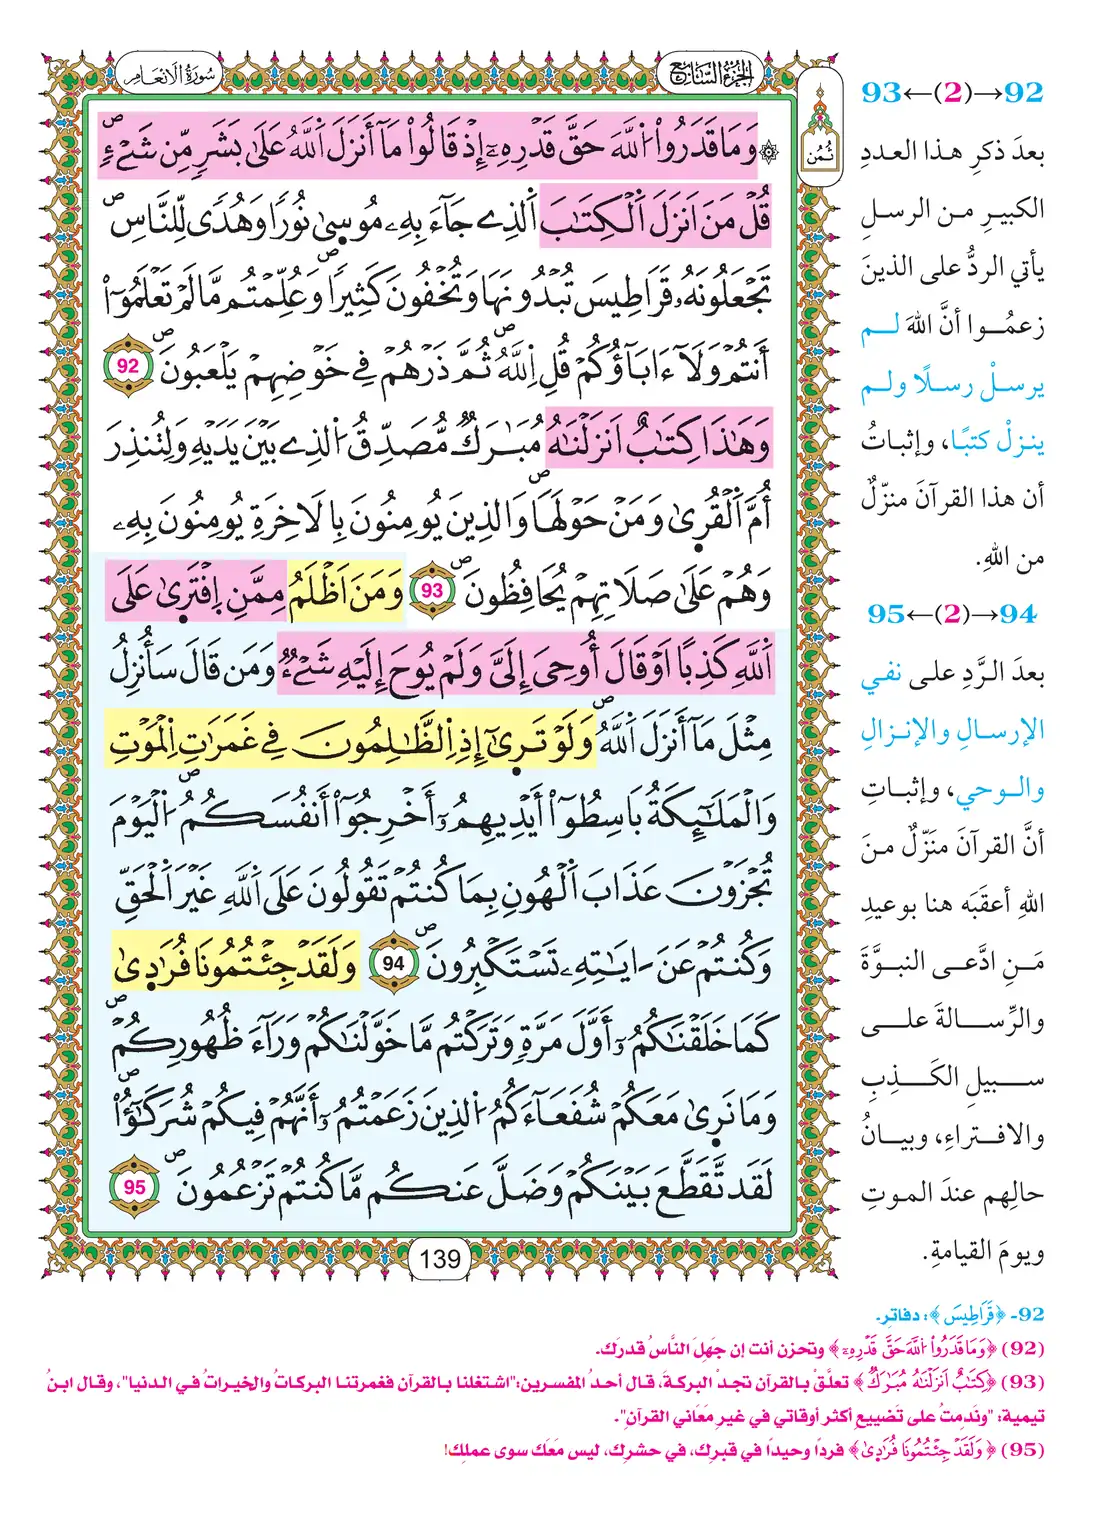 سُورَةُ الَانْعَامِ
الجُزْءُ السَّابِعُ
ثُمُن
۞ وَمَا قَدَرُواْ اُللَّهَ حَقَّ قَدْرِهِۦٓ إِذْ قَالُواْ مَآ أَنزَلَ اَللَّهُ عَلَىٰ بَشَرٍ مِّن شَےْءٍۖ
قُلْ مَنَ اَنزَلَ اَلْكِتَٰبَ اَلذِے جَآءَ بِهِۦ مُوسۭيٰ نُوراً وَهُدًى لِّلنَّاسِۖ
تَجْعَلُونَهُۥ قَرَاطِيسَ تُبْدُونَهَا وَتُخْفُونَ كَثِيراًۖ وَعُلِّمْتُم مَّا لَمْ تَعْلَمُوٓاْ
أَنتُمْ وَلَآ ءَابَآؤُكُمْۖ قُلِ اِللَّهُۖ ثُمَّ ذَرْهُمْ فِے خَوْضِهِمْ يَلْعَبُونَۖ 92
وَهَٰذَا كِتَٰبٌ اَنزَلْنَٰهُ مُبَٰرَكٌ مُّصَدِّقُ اُلذِے بَيْنَ يَدَيْهِ وَلِتُنذِرَ
أُمَّ اَلْقُر۪يٰ وَمَنْ حَوْلَهَاۖ وَالذِينَ يُومِنُونَ بِالَاخِرَةِ يُومِنُونَ بِهِۦ
وَهُمْ عَلَىٰ صَلَاتِهِمْ يُحَافِظُونَۖ 93 وَمَنَ اَظْلَمُ مِمَّنِ اِفْتَر۪يٰ عَلَى
اَللَّهِ كَذِباً اَوْ قَالَ أُوحِىَ إِلَىَّ وَلَمْ يُوحَ إِلَيْهِ شَےْءٌ وَمَن قَالَ سَأُنزِلُ
مِثْلَ مَآ أَنزَلَ اَللَّهُۖ وَلَوْ تَر۪يٰٓ إِذِ اِلظَّٰلِمُونَ فِے غَمَرَٰتِ اِلْمَوْتِ
وَالْمَلَٰٓئِكَةُ بَاسِطُوٓاْ أَيْدِيهِمُۥٓ أَخْرِجُوٓاْ أَنفُسَكُمُۖ اُلْيَوْمَ
تُجْزَوْنَ عَذَابَ اَلْهُونِ بِمَا كُنتُمْ تَقُولُونَ عَلَى اَللَّهِ غَيْرَ اَلْحَقِّ
وَكُنتُمْ عَنَ ـايَٰتِهِۦ تَسْتَكْبِرُونَۖ 94 وَلَقَدْ جِئْتُمُونَا فُرَٰد۪يٰ
كَمَا خَلَقْنَٰكُمُۥٓ أَوَّلَ مَرَّةٍ وَتَرَكْتُم مَّا خَوَّلْنَٰكُمْ وَرَآءَ ظُهُورِكُمْۖ
وَمَا نَر۪يٰ مَعَكُمْ شُفَعَآءَكُمُ اُلذِينَ زَعَمْتُمُۥٓ أَنَّهُمْ فِيكُمْ شُرَكَٰٓؤُاْۖ
لَقَد تَّقَطَّعَ بَيْنَكُمْ وَضَلَّ عَنكُم مَّا كُنتُمْ تَزْعُمُونَۖ 95
139
93←(2)→92
بعدَ ذكرِ هذا العددِ
الكبيرِ من الرسلِ
يأتي الردُّ على الذينَ
زعمُوا أنَّ اللهَ لم
يرسلْ رسلًا ولم
ينزلْ كتبًا، وإثباتُ
أن هذا القرآنَ منزّلٌ
من اللهِ.
95←(2)→94
بعدَ الرَّدِ على نفي
الإرسالِ والإنزالِ
والوحي، وإثباتِ
أنَّ القرآنَ منَزّلٌ منَ
اللهِ أعقَبَه هنا بوعيدِ
مَنِ ادَّعى النبوَّةَ
والرِّسالةَ على
سبيلِ الكَذِبِ
والافتراءِ، وبيانُ
حالِهم عندَ الموتِ
ويومَ القيامةِ.
92- ﴿قَرَاطِيسَ﴾: دفاتر.
(92) ﴿وَمَا قَدَرُواْ اُللَّهَ حَقَّ قَدْرِهِۦٓ﴾ وتحزن أنت إن جَهِلَ النَّاسُ قدرَك.
(93) ﴿كِتَٰبٌ اَنزَلْنَٰهُ مُبَٰرَكٌ﴾ تعلَّقْ بالقرآن تجدْ البركةَ، قال أحدُ المفسرين:"اشتغلنا بالقرآن فغمرتنا البركاتُ والخيراتُ في الدنيا"، وقال ابنُ
تيمية: "ونَدِمتُ على تَضْييعِ أكثر أوقاتي في غيرِ مَعَاني القرآنِ".
(95) ﴿وَلَقَدْ جِئْتُمُونَا فُرَٰد۪يٰ﴾ فردًا وحيدًا في قبرِك، في حشرِك، ليس مَعَك سوى عملِك!